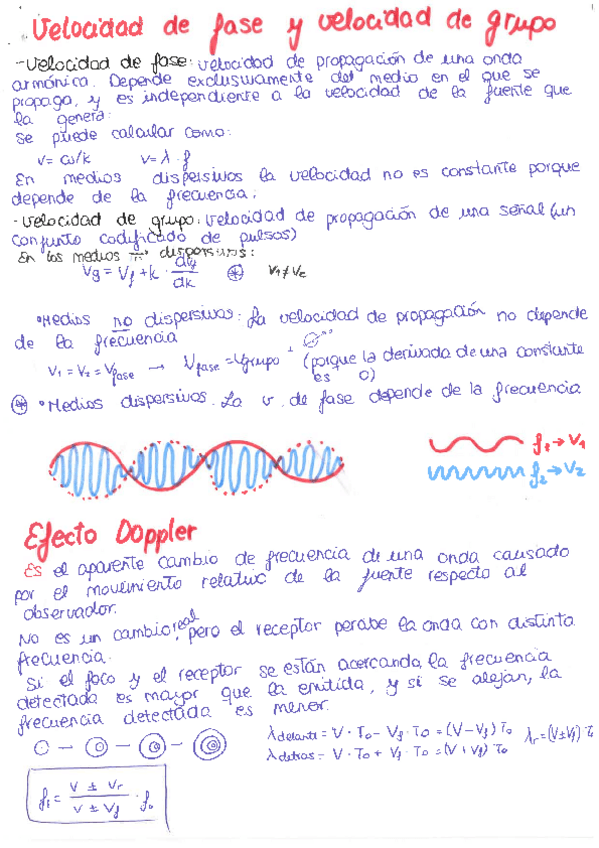 Velocidad de fase y velocidad de grupo
-Velocidad de fase: velocidad de propagación de una onda
armónica. Depende exclusivamente del medio en el que se
propaga, y es independiente a la velocidad de la fuente que
la genera:
Se puede calcular como:
v = ω/k v = λ · f
En medios dispersivos la velocidad no es constante porque
depende de la frecuencia.
-Velocidad de grupo: velocidad de propagación de una señal (un
conjunto codificado de pulsos)
En los medios dispersivos:
Vg = Vf + k · dVf/dk ⊛ V1≠V2
•Medios no dispersivos: La velocidad de propagación no depende
de la frecuencia
V1 = V2 = Vfase → Vfase = Vgrupo + (porque la derivada de una constante
es 0)
⊛ •Medios dispersivos. La v. de fase depende de la frecuencia.
f1 → V1
f2 → V2
Efecto Doppler
Es el aparente cambio de frecuencia de una onda causado
por el movimiento relativo de la fuente respecto al
observador.
No es un cambio real, pero el receptor percibe la onda con distinta
frecuencia.
Si el foco y el receptor se están acercando, la frecuencia
detectada es mayor que la emitida, y si se alejan, la
frecuencia detectada es menor.
λdelante = V · T0 - Vf · T0 = (V - Vf) T0 λr = (V±Vf) T0
λdetras = V · T0 + Vf · T0 = (V + Vf) T0
f1 = (V ± Vr)/(V ± Vf) · f0